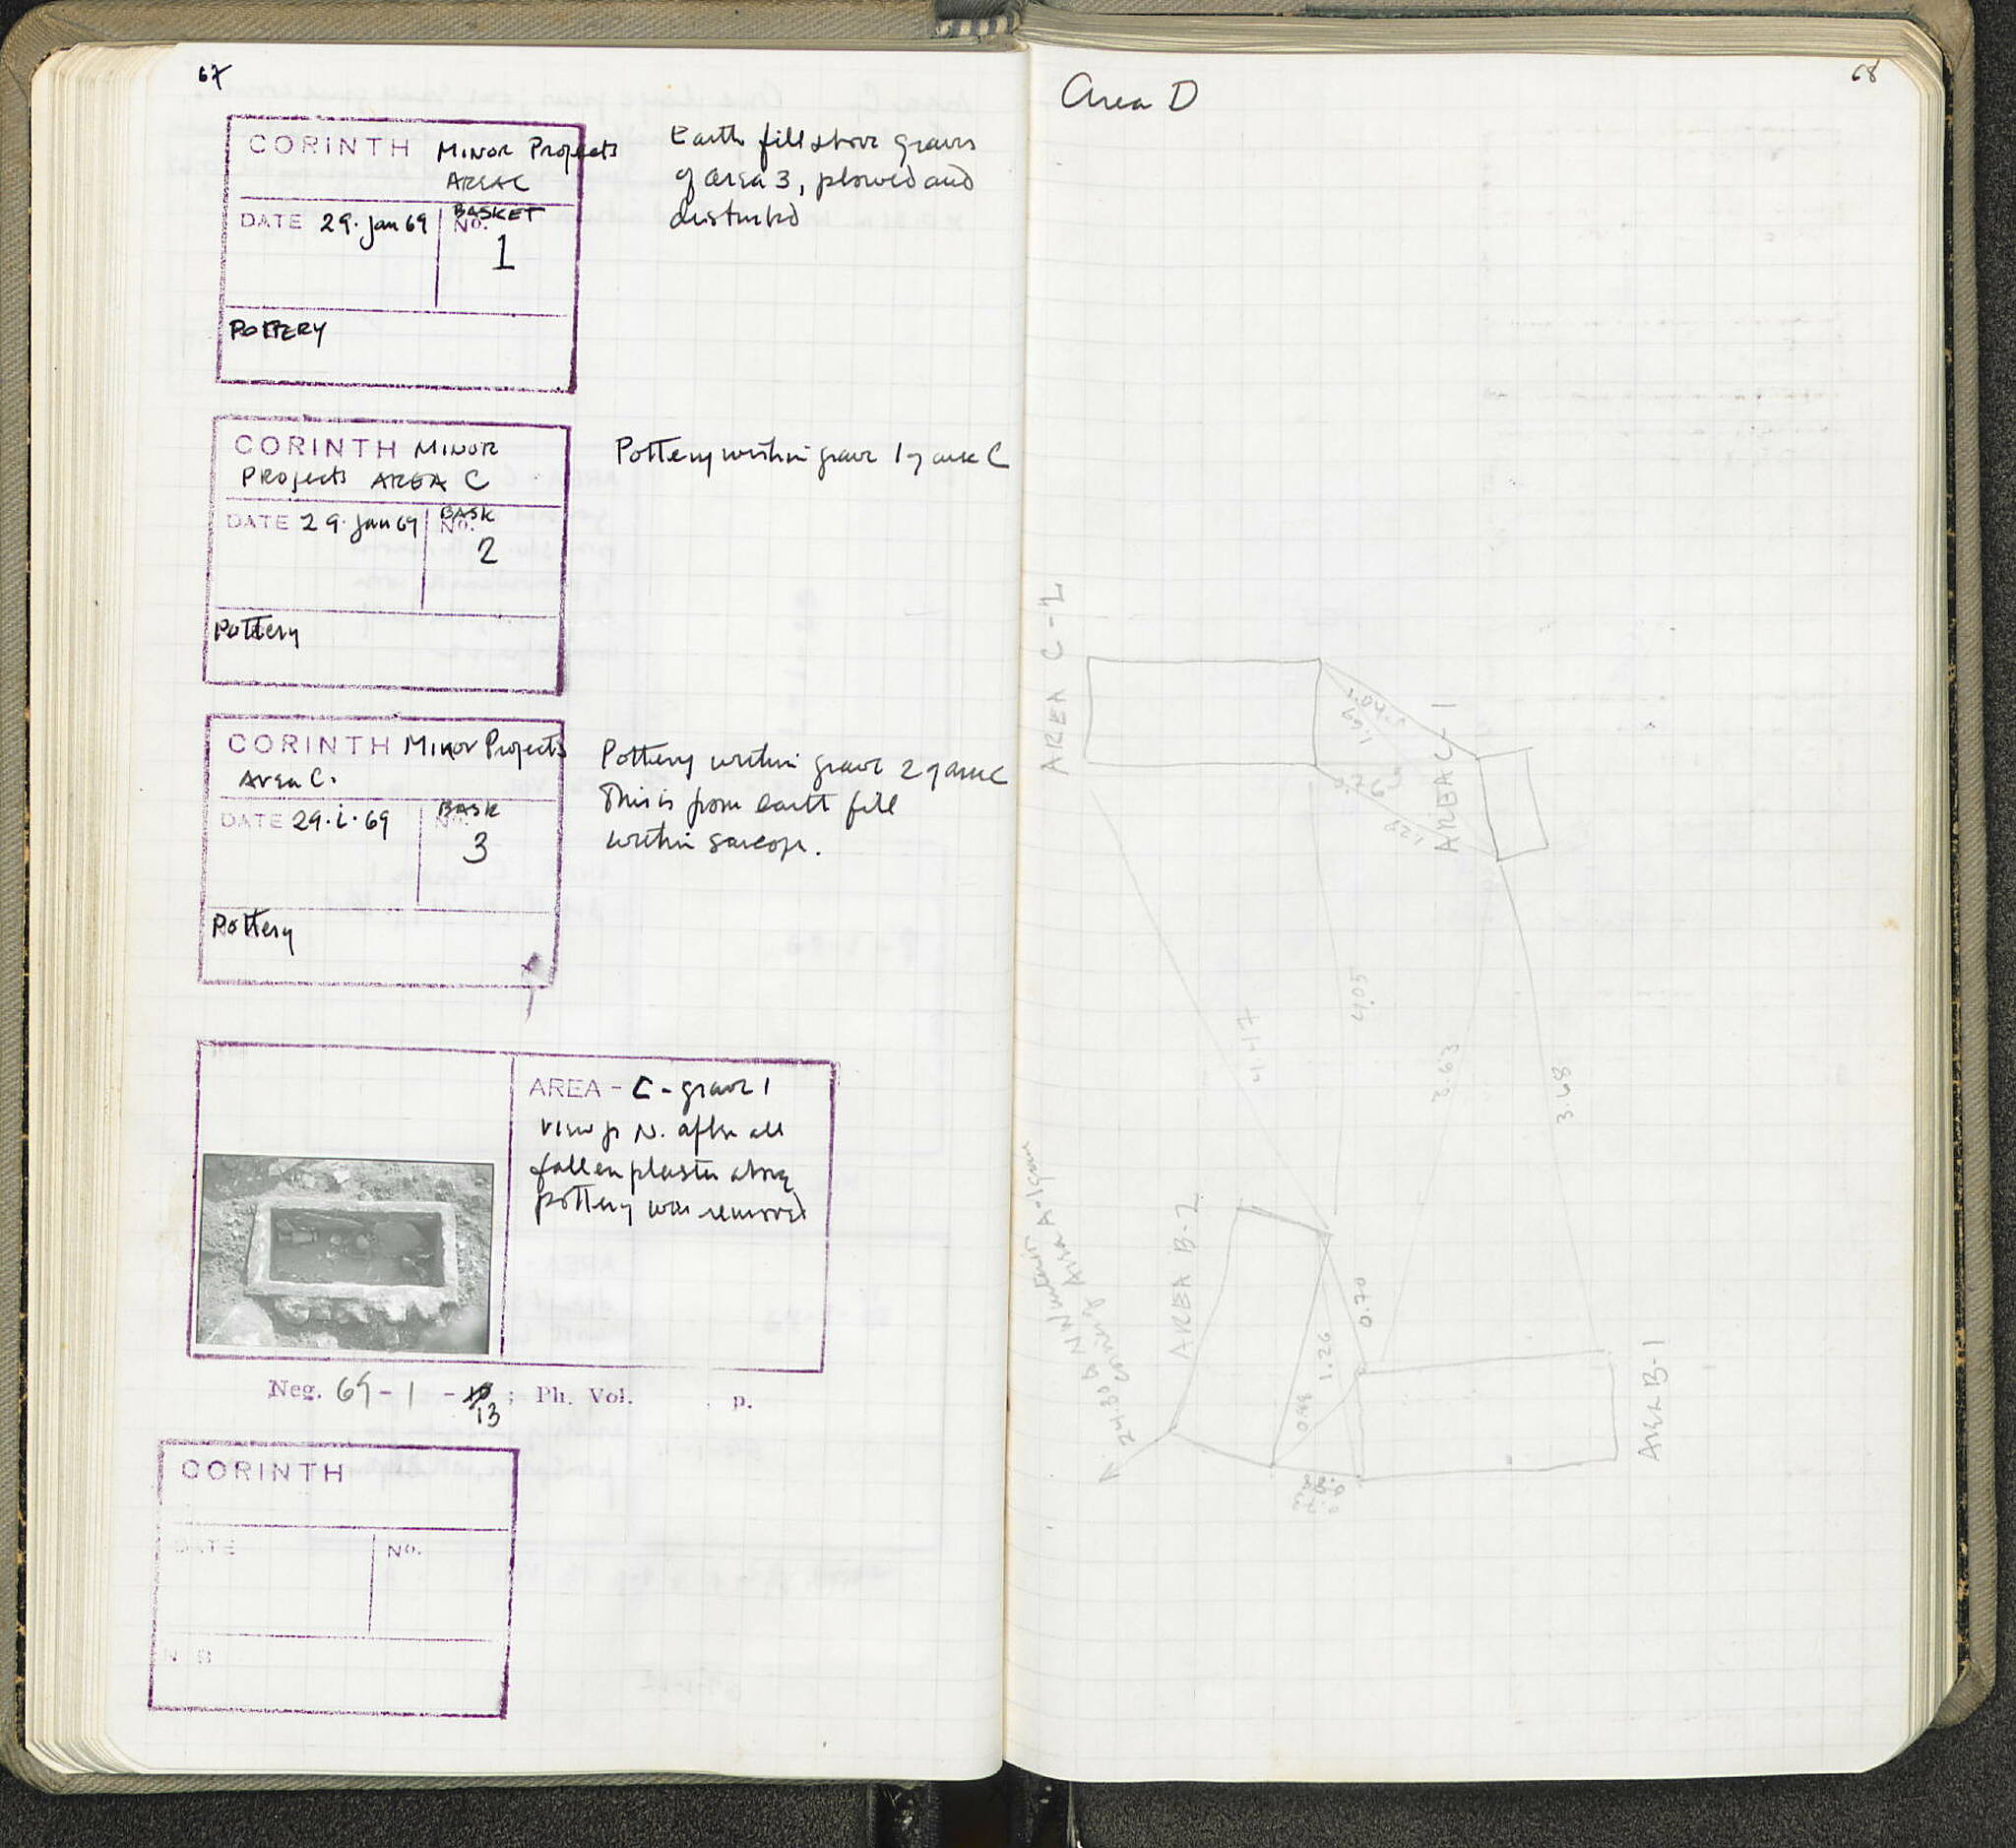 67
CORINTH Minor Projects
AREA C
DATE 29. Jan 69
BASKET
No.
1
POTTERY
Earth fill above graves
of area 3, plowed and
disturbed
CORINTH MINOR
Projects AREA C
DATE 29. Jan 69
BASK
No.
2
Pottery
Pottery within grave 1 of area C
CORINTH Minor Projects
Area C.
DATE 29. i. 69
BASK
No.
3
Pottery
Pottery within grave 2 of area C
This is from earth fill
within sarcoph.
AREA - C - grave 1
view fr N. after all
fallen plaster above
pottery was removed
Neg. 69 - 1 - 13 ; Ph. Vol. p.
CORINTH
DATE
No.
N B
68
Area D
AREA C-2
AREA C-1
1.69
1.29
4.47
4.05
3.63
3.68
AREA B-2
0.70
1.26
AREA B-1
24.30 to NW
corner of Area A-1